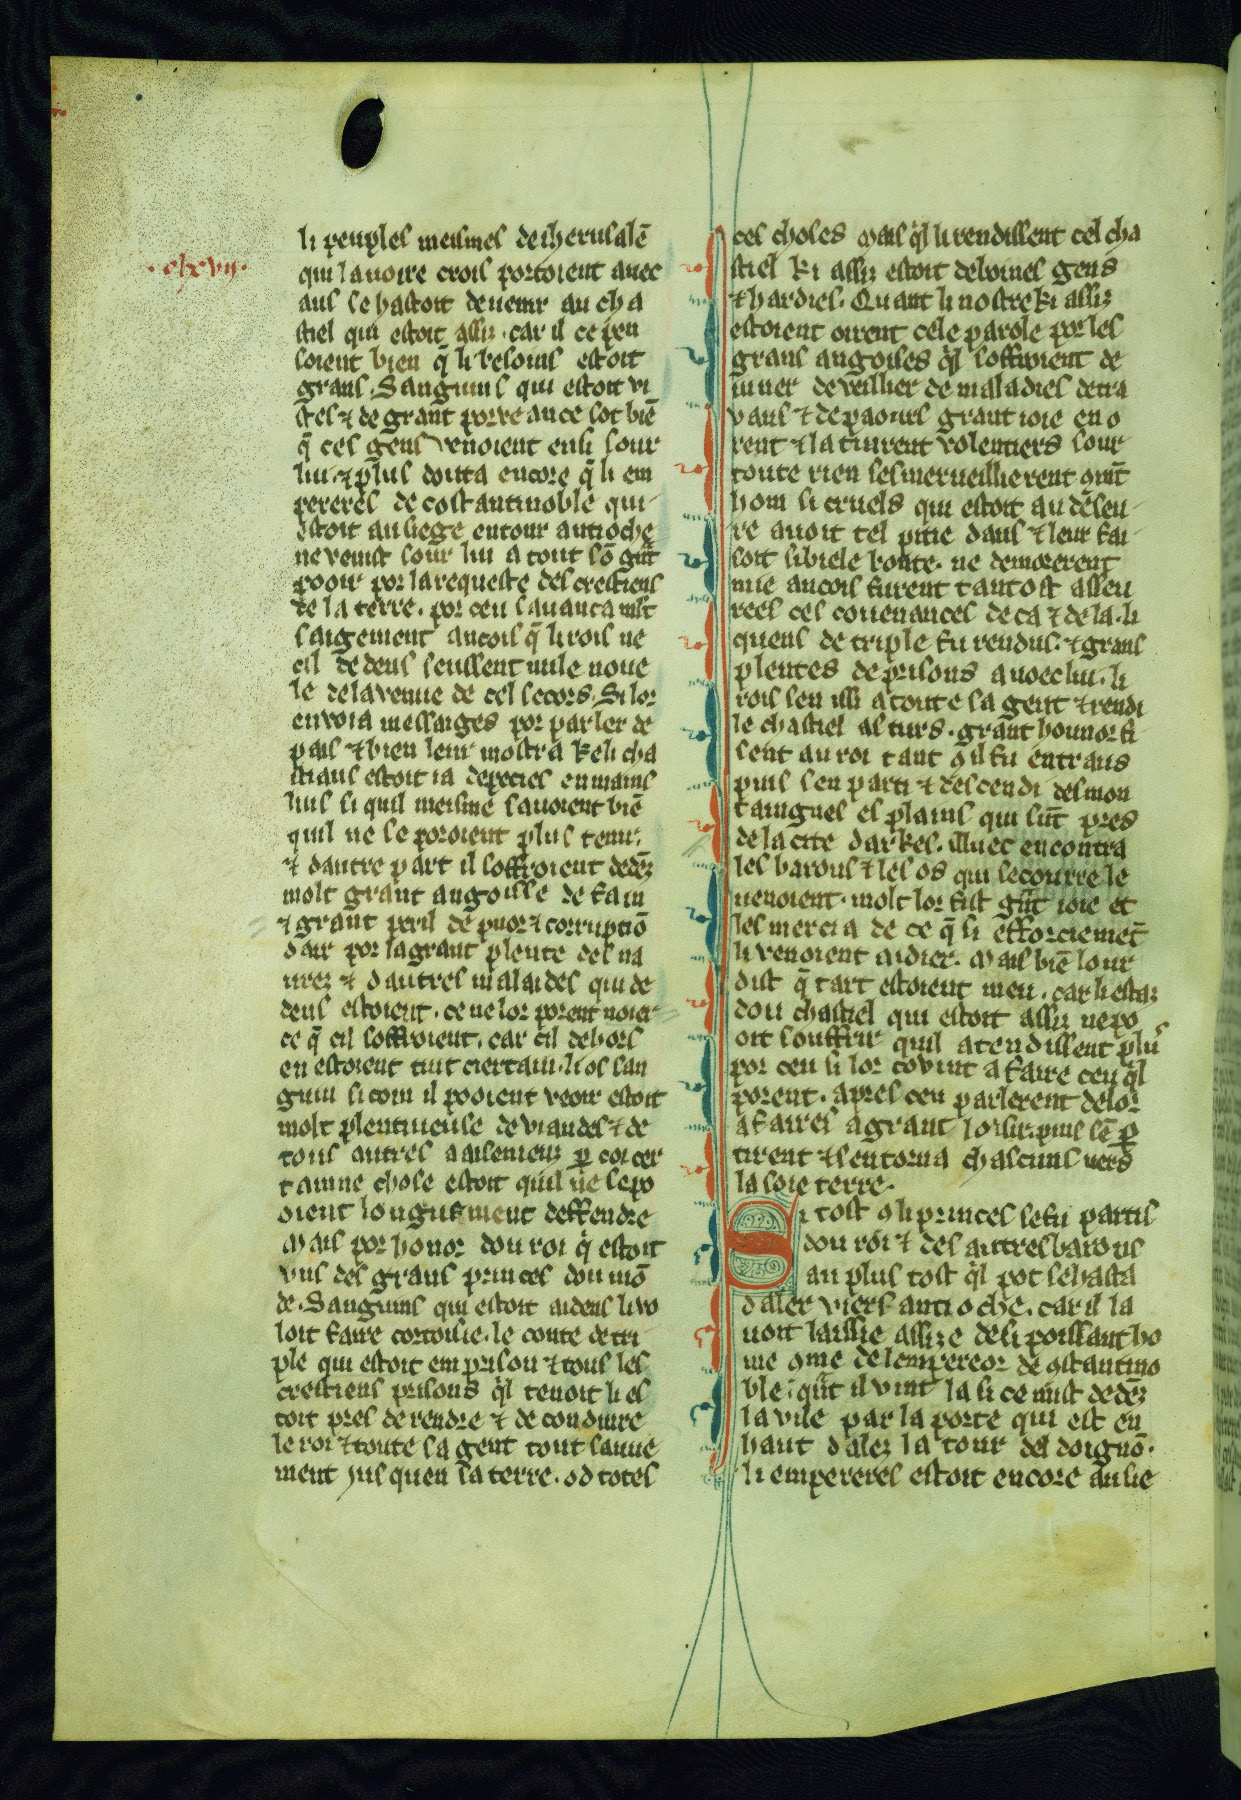 .clxvii.
li peuples meismes de iherusalē
qui la uoire crois portoient auec
aus se hastoit deuenir au cha
stiel qui estoit assiz . car il ce pen
soient bien q̄ li besoins estoit
grans . Sanguins qui estoit vi
stes ⁊ de grant porveance sot biē
q̄ ces gens venoient ensi sour
lui . ⁊ plus douta encore q̄ li em
pereres de costantinoble qui
estoit au siege entour antioche
ne venist sour lui a tout sō gn̄t
pooir por la requeste des crestiens
de la terre . por ceu sauanca mlt
saigement ancois q̄ li rois ne
cil de dens seussent nule noue
le de la venue de cel secors . Si lor
envoia messaiges por parler de
pais ⁊ bien leur mostra ke li cha
stiaus estoit ia depecies en mains
lius si quil meisme sauoient biē
quil ne se poroient plus tenir .
⁊ dautre part il soffroient dedēz
molt grant angoisse de fain
⁊ grant peril de puor ⁊ corruptiō
dair por la grant plente des na
urez ⁊ dautres malaides qui de
dens estoient . ce ne lor porent noier
ce q̄ cil soffroient . car cil dehors
en estoient tuit ciertain . li os san
guin si com il pooient veoir estoit
molt plentiueuse de viandes ⁊ de
tous autres aaisemenz ꝑ coi cer
tainne chose estoit quil ne se po
oient longuement deffendre
Mais por honor dou roi q̇ estoit
vns des grans princes dou mō
de . Sanguins qui estoit aidens li vo
loit faire cortoisie . le conte de tri
ple qui estoit em prison ⁊ tous les
crestiens prisons q̇l tenoit li es
toit pres de rendre ⁊ de conduire
le roi ⁊ toute sa gent tout sauue
ment jus quen sa terre . od totes
ces choses Mais q̇l li rendissent cel cha
stiel ki assiz estoit deboines gens
⁊ hardies . Quant li nostre ki assiz
estoient oirent cele parole por les
grans angoises q̇l soffroient de
iuner de veillier de maladies de tra
vaus ⁊ de paours grant ioie en o
rent ⁊ la tinrent volentiers sour
toute rien ses merueillierent ꝯmt̄
hom si cruels qui estoit au deseu
re auoit tel pitie daus ⁊ leur fai
soit si biele bonte . ne demorerent
mie ancois furent tantost asseu
rees ces couenances de ca ⁊ de la . li
quens de triple fu rendus . ⁊ grans
plentes de prisons auoec lui . li
rois sen issi a toute sa gent ⁊ rendi
le chastiel as turs . grant honnor fi
sent au roi tant ꝯ il fu entraus
puis sen parti ⁊ descendi des mon
taingnes es plains qui sūt pres
de la cite darkes . illuec encontra
les barons ⁊ les os qui secourre le
uenoient . molt lor fist gn̄t ioie et
les mercia de ce q̄ si efforciemēt
li venoient aidier . Mais biē lour
dist q̄ tart estoient meu . car li estaz
dou chastiel qui estoit assiz ne po
oit souffrir quil atendissent plus
por ceu si lor covint a faire ceu q̇l
porent . apres ceu parlerent de lor
afaires a grant loisir . puis sē ꝑ
tirent ⁊ sen torna chascuns vers
la soie terre .
Si tost ꝯ li princes se fu partis
dou roi ⁊ des autres barons
au plus tost q̇l pot se hasta
daler viers antioche . car il la
uoit laissie assize de si poissant ho
me ꝯme de lempereor de ꝯstantino
ble . qn̄t il vint la si ce mist dedēz
la vile par la porte qui est en
haut dalez la tour del doignō .
li empereres estoit encore au sie